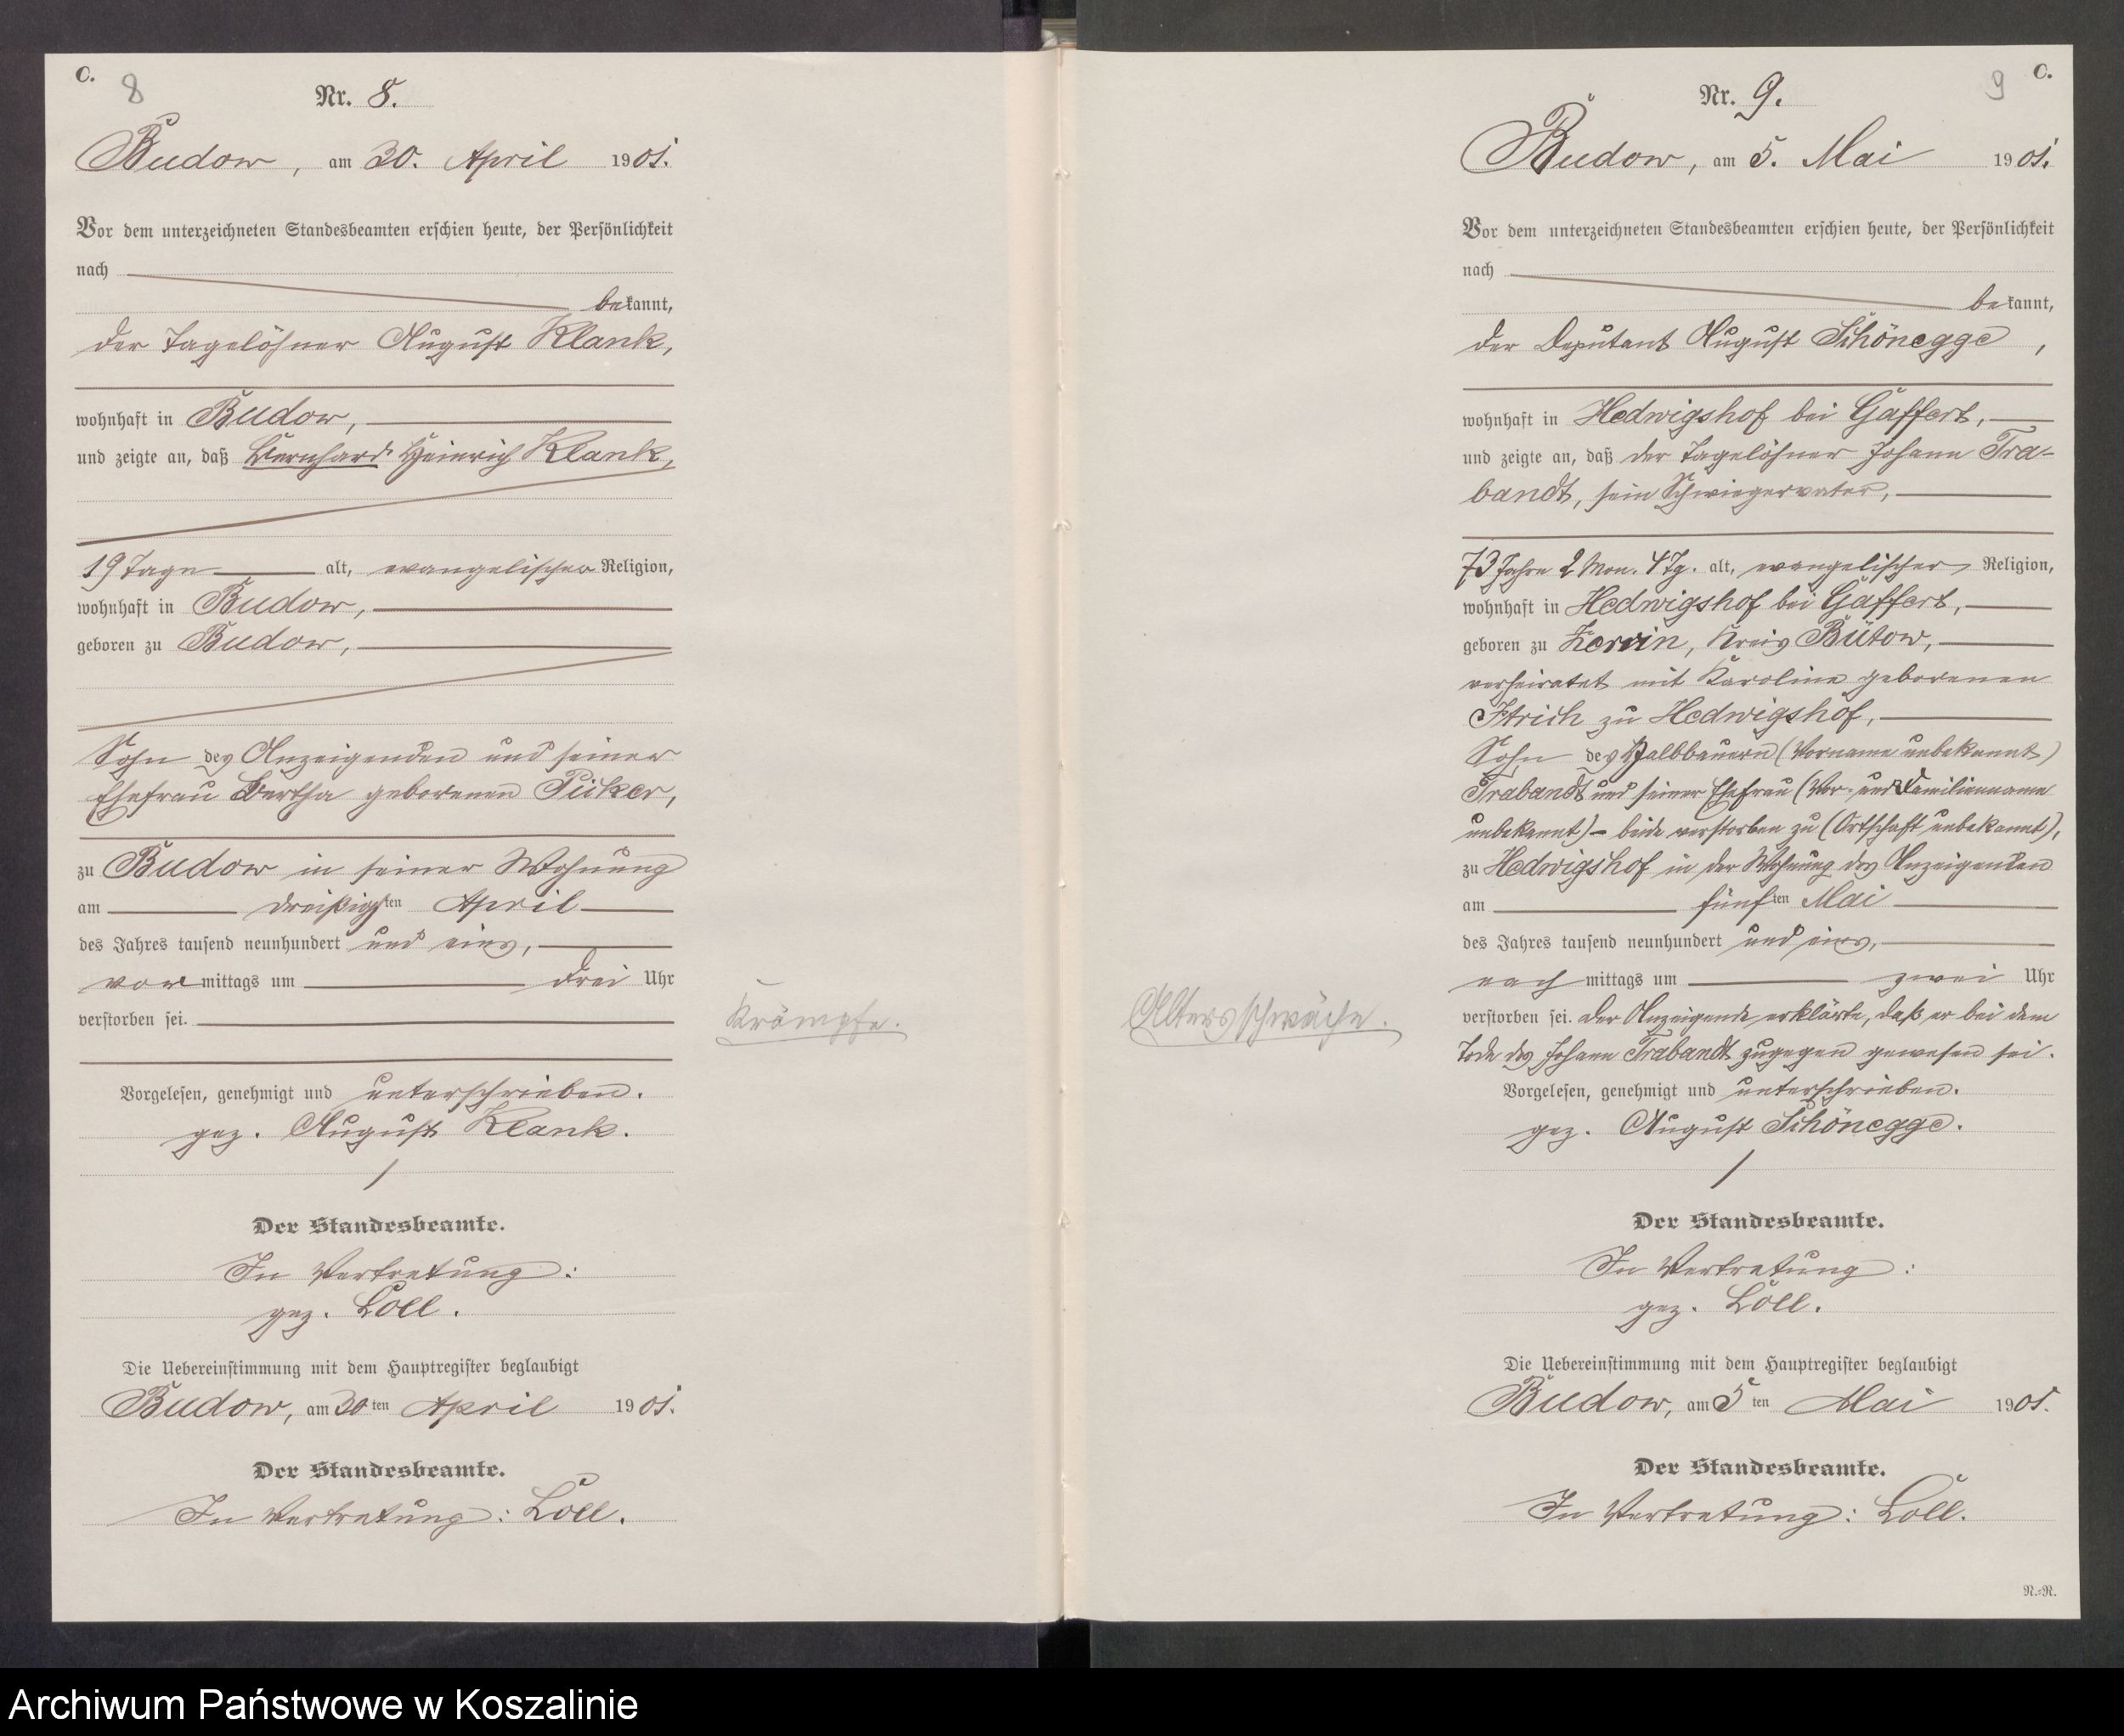 C. 8
Nr. 8.
Budow, am 30. April 1901.
Vor dem unterzeichneten Standesbeamten erschien heute, der Persönlichkeit
nach
bekannt,
der Tagelöhner August Klank,
wohnhaft in Budow,
und zeigte an, daß Bernhard Heinrich Klank,
19 Tage alt, evangelischer Religion,
wohnhaft in Budow,
geboren zu Budow,
Sohn des Anzeigenden und seiner
Ehefrau Bertha geborenen Piker,
zu Budow in seiner Wohnung
am dreißigsten April
des Jahres tausend neunhundert und eins,
vormittags um drei Uhr
verstorben sei.
Krämpfe.
Vorgelesen, genehmigt und unterschrieben.
gez. August Klank.
Der Standesbeamte.
In Vertretung:
gez. Loll.
Die Uebereinstimmung mit dem Hauptregister beglaubigt
Budow, am 30ten April 1901.
Der Standesbeamte.
In Vertretung: Loll.
9 C.
Nr. 9.
Budow, am 5. Mai 1901.
Vor dem unterzeichneten Standesbeamten erschien heute, der Persönlichkeit
nach
bekannt,
der Deputant August Schönegge,
wohnhaft in Hedwigshof bei Gaffert,
und zeigte an, daß der Tagelöhner Johann Tra-
bandt, sein Schwiegervater,
73 Jahre 2 Mon. 4 Tg. alt, evangelischer Religion,
wohnhaft in Hedwigshof bei Gaffert,
geboren zu Zerrin, Kreis Bütow,
verheiratet mit Karoline geborenen
Itrich zu Hedwigshof,
Sohn des Halbbauern (Vorname unbekannt)
Trabandt und seiner Ehefrau (Vor- und Familienname
unbekannt) – beide verstorben zu (Ortschaft unbekannt),
zu Hedwigshof in der Wohnung des Anzeigenden
am fünften Mai
des Jahres tausend neunhundert und eins,
nachmittags um zwei Uhr
verstorben sei. Der Anzeigende erklärte, daß er bei dem
Tode des Johann Trabandt zugegen gewesen sei.
Altersschwäche.
Vorgelesen, genehmigt und unterschrieben.
gez. August Schönegge.
Der Standesbeamte.
In Vertretung:
gez. Loll.
Die Uebereinstimmung mit dem Hauptregister beglaubigt
Budow, am 5ten Mai 1901.
Der Standesbeamte.
In Vertretung: Loll.
N.=N.
Archiwum Państwowe w Koszalinie